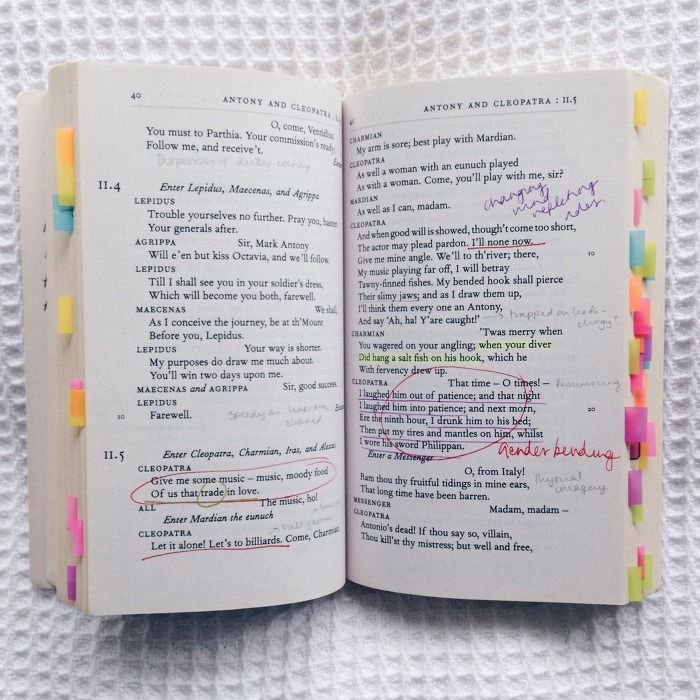 40
ANTONY AND CLEOPATRA : II.
O, come, Ventidius
You must to Parthia. Your commission's ready;
Follow me, and receive't.
II.4 Enter Lepidus, Maecenas, and Agrippa
LEPIDUS
Trouble yourselves no further. Pray you, hasten
Your generals after.
AGRIPPA Sir, Mark Antony
Will e'en but kiss Octavia, and we'll follow.
LEPIDUS
Till I shall see you in your soldier's dress,
Which will become you both, farewell.
MAECENAS We shall,
As I conceive the journey, be at th'Mount
Before you, Lepidus.
LEPIDUS Your way is shorter.
My purposes do draw me much about.
You'll win two days upon me.
MAECENAS and AGRIPPA Sir, good success.
LEPIDUS
10 Farewell.
II.5 Enter Cleopatra, Charmian, Iras, and Alexas
CLEOPATRA
Give me some music – music, moody food
Of us that trade in love.
ALL The music, ho!
Enter Mardian the eunuch
CLEOPATRA
Let it alone! Let's to billiards. Come, Charmian.
41
ANTONY AND CLEOPATRA : II.5
CHARMIAN
My arm is sore; best play with Mardian.
CLEOPATRA
As well a woman with an eunuch played
As with a woman. Come, you'll play with me, sir?
MARDIAN
As well as I can, madam.
changing
mind
reflecting
CLEOPATRA
And when good will is showed, though't come too short,
The actor may plead pardon. I'll none now.
Give me mine angle. We'll to th'river; there, 10
My music playing far off, I will betray
Tawny-finned fishes. My bended hook shall pierce
Their slimy jaws; and as I draw them up,
I'll think them every one an Antony,
And say 'Ah, ha! Y'are caught!'
CHARMIAN 'Twas merry when
You wagered on your angling; when your diver
Did hang a salt fish on his hook, which he
With fervency drew up.
CLEOPATRA That time – O times! –
I laughed him out of patience; and that night
I laughed him into patience; and next morn, 20
Ere the ninth hour, I drunk him to his bed;
Then put my tires and mantles on him, whilst
I wore his sword Philippan.
Gender bending
Enter a Messenger
O, from Italy!
Ram thou thy fruitful tidings in mine ears,
That long time have been barren.
imagery
MESSENGER Madam, madam –
CLEOPATRA
Antonio's dead! If thou say so, villain,
Thou kill'st thy mistress; but well and free,